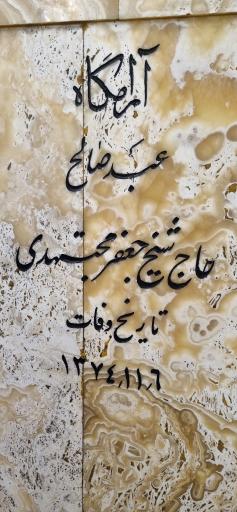 آرامگاه
عبد صالح
حاج شیخ جعفر مجتهدی
تاریخ وفات
۱۳۷۴٫۱۱٫۶